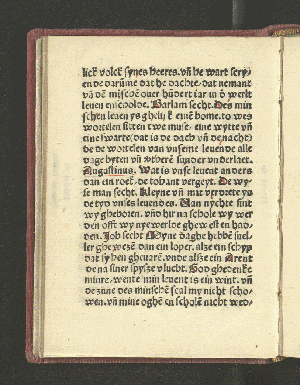 lick volck synes heeres. vn̄ he wart scry-
ende darūme dat he dachte/ dat nemant
vā dē mischē ouer hūdert iar in d̓ werlt
leuen mchr̄olde. Barlam secht. Des min
schen leuen ys ghelijk eine bome. to wes
wortelen sitten twe muse. eine wytte vn̄
eine swarte/ dat is de dach vn̄ de nacht/
de de wortelen van vnseme leuende alle
dage byten vn̄ vterē sunder vnderlaet.
Augustinus. Wat is vnse leuent anders
dan ein roeck/ de tobant vergeyt. De wy-
se man secht. Kleyne vn̄ mit vordrete ys
de tyd vnses leuendes. Van nychte sint
wy gheboren. vnd hir na schole wy wer
den oft wy ny ewerlde ghewest en had-
den. Job secht Myne daghe hebbē snel-
ler ghewezē dan ein loper. alze ein schyp
dat sy ben gheuarē. vnde alsze ein Arent
de na siner spysze vlucht. God ghedenke
miner. wente min leuent is ein wint. vn̄
de zūne des minschē scal my nicht scho-
wen. vn̄ mine oghē en scholē nicht wed-